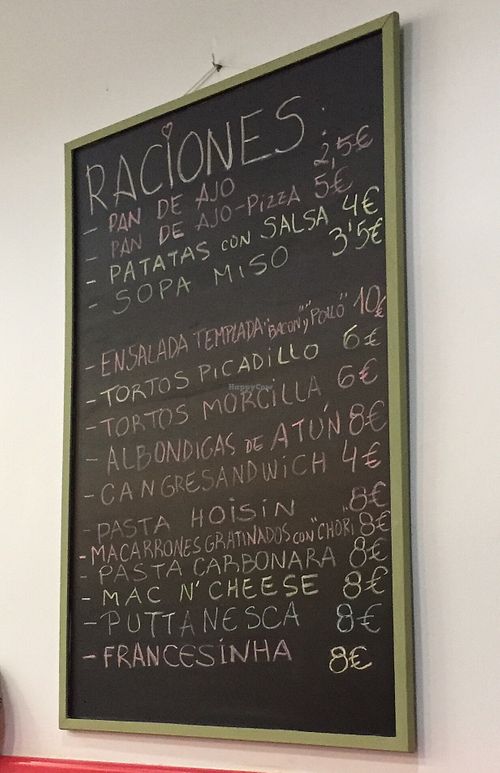 RACIONES:
- PAN DE AJO 2,5€
- PAN DE AJO-PIZZA 5€
- PATATAS CON SALSA 4€
- SOPA MISO 3'5€
- ENSALADA TEMPLADA "BACON" Y "POLLO" 10€
- TORTOS PICADILLO 6€
- TORTOS MORCILLA 6€
- ALBONDIGAS DE ATÚN 8€
- CANGRESANDWICH 4€
- PASTA HOISIN 8€
- MACARRONES GRATINADOS CON "CHORI" 8€
- PASTA CARBONARA 8€
- MAC N' CHEESE 8€
- PUTTANESCA 8€
- FRANCESINHA 8€
HappyCow